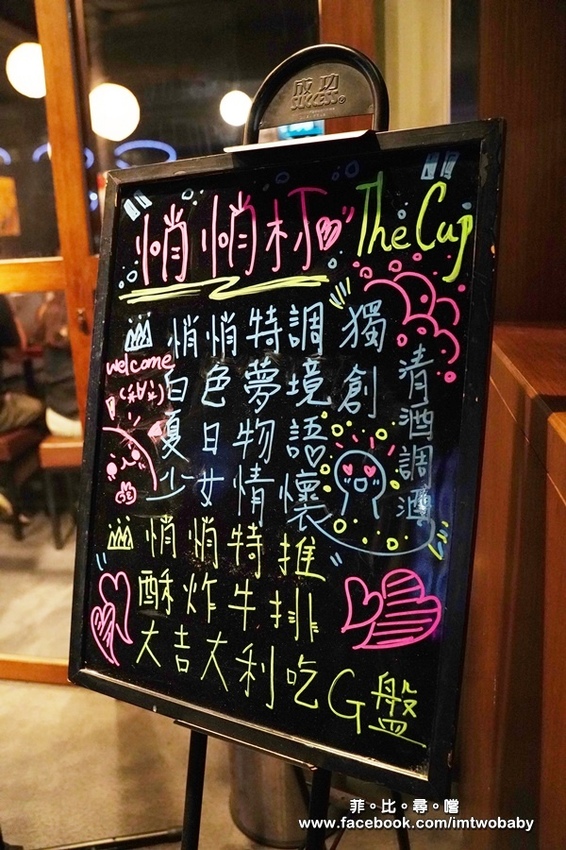 成功
SUCCESS®
悄悄杯 The Cup
悄悄特調
獨創
清酒調酒
welcome
白色夢境
夏日物語
少女情懷
悄悄特推
酥炸牛排
大吉大利吃G盤
菲。比。尋。嚐
www.facebook.com/imtwobaby